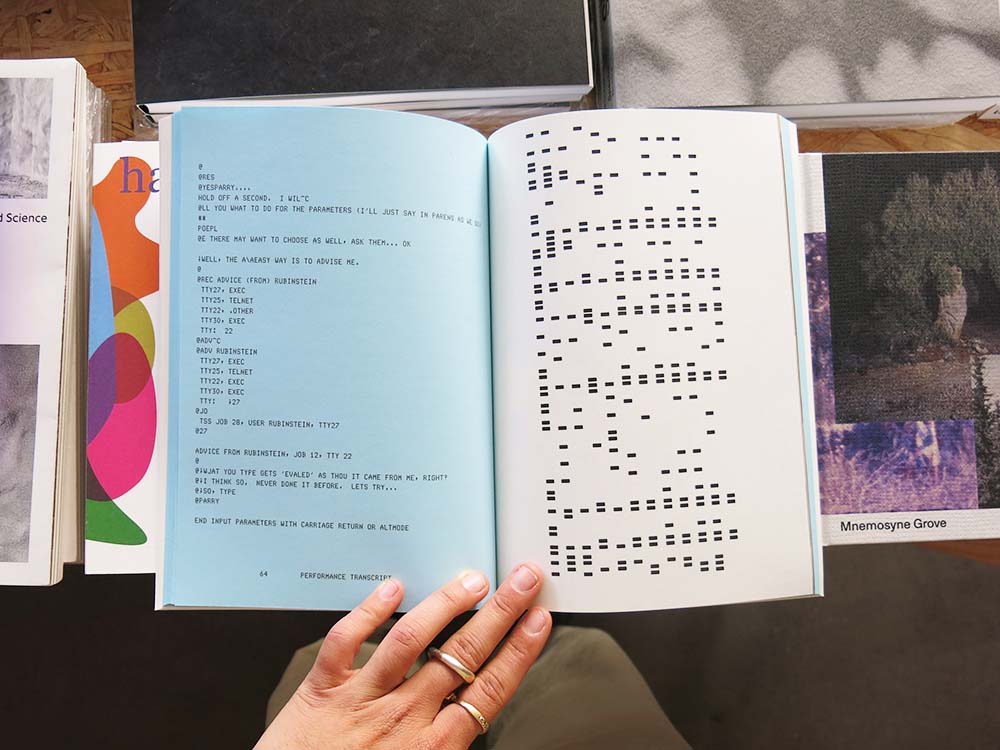 d Science
ha
@
@RES
@YESPARRY....
HOLD OFF A SECOND.  I WIL^C
@LL YOU WHAT TO DO FOR THE PARAMETERS (I'LL JUST SAY IN PARENS AS WE
**
POEPL
@E THERE MAY WANT TO CHOOSE AS WELL, ASK THEM... OK
;WELL, THE A\AEASY WAY IS TO ADVISE ME.
@
@REC ADVICE (FROM) RUBINSTEIN
TTY27, EXEC
TTY25, TELNET
TTY22, .OTHER
TTY30, EXEC
TTY:  22
@ADV^C
@ADV RUBINSTEIN
TTY27, EXEC
TTY25, TELNET
TTY22, EXEC
TTY30, EXEC
TTY:  ;27
@JO
TSS JOB 28, USER RUBINSTEIN, TTY27
@27
ADVICE FROM RUBINSTEIN, JOB 12, TTY 22
@
@;WJAT YOU TYPE GETS 'EVALED' AS THOU IT CAME FROM ME, RIGHT?
@;I THINK SO.  NEVER DONE IT BEFORE.  LETS TRY...
@;SO, TYPE
@PARRY
END INPUT PARAMETERS WITH CARRIAGE RETURN OR ALTMODE
64 PERFORMANCE TRANSCRIPT
Mnemosyne Grove